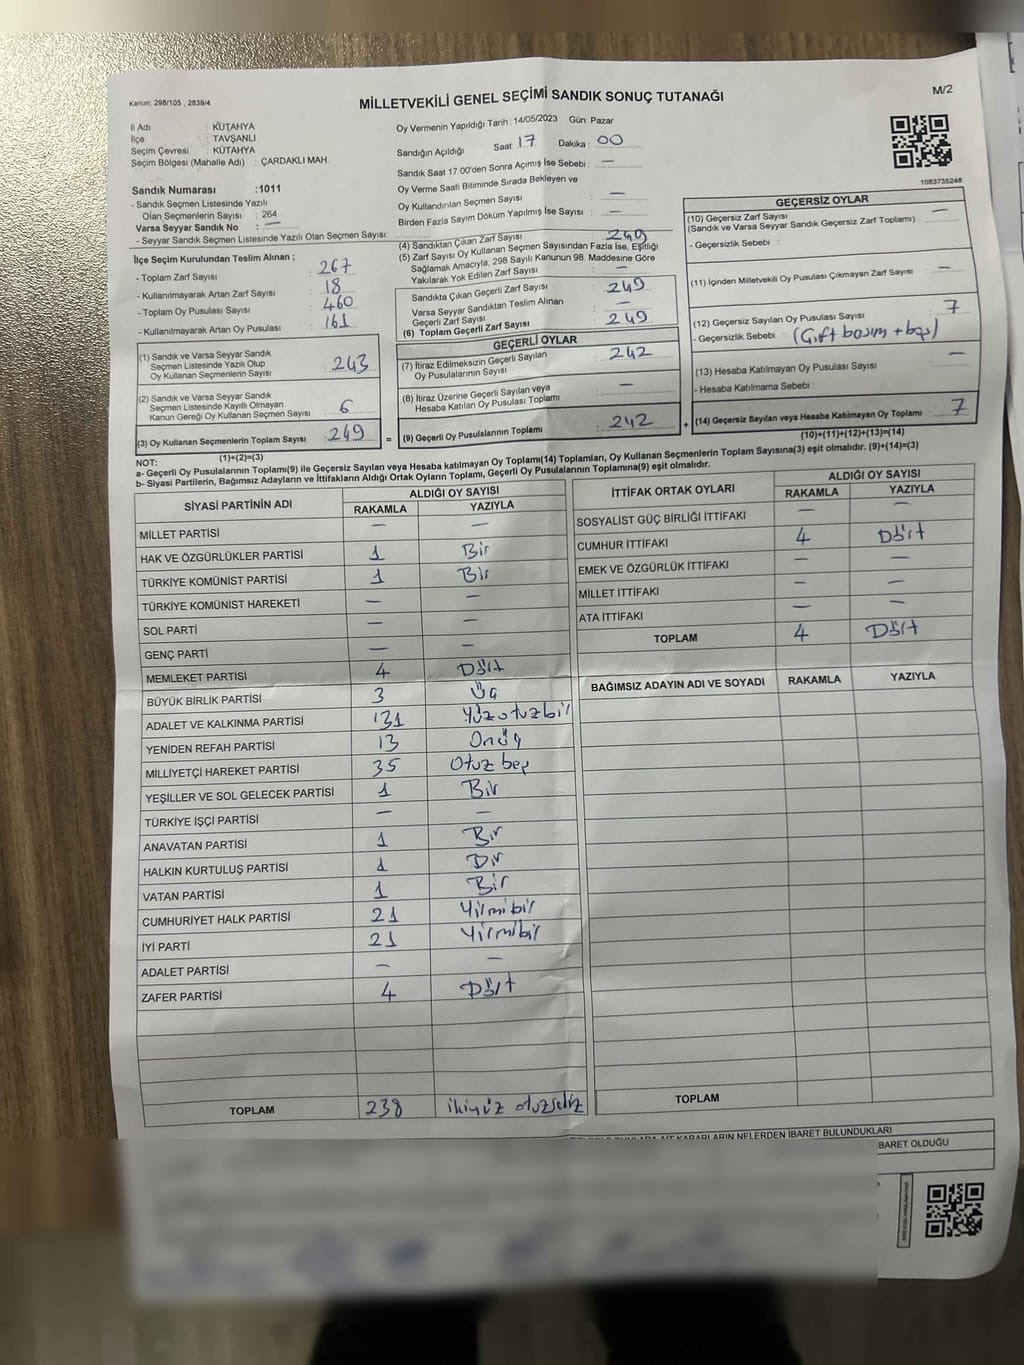 Kanun; 298/105 , 2839/4
MİLLETVEKİLİ GENEL SEÇİMİ SANDIK SONUÇ TUTANAĞI
M/2
İl Adı : KÜTAHYA
İlçe : TAVŞANLI
Seçim Çevresi : KÜTAHYA
Seçim Bölgesi (Mahalle Adı) : ÇARDAKLI MAH.
Sandık Numarası :1011
- Sandık Seçmen Listesinde Yazılı
Olan Seçmenlerin Sayısı : 264
Varsa Seyyar Sandık No : —
- Seyyar Sandık Seçmen Listesinde Yazılı Olan Seçmen Sayısı:
İlçe Seçim Kurulundan Teslim Alınan ;
- Toplam Zarf Sayısı : 267
- Kullanılmayarak Artan Zarf Sayısı : 18
- Toplam Oy Pusulası Sayısı : 460
- Kullanılmayarak Artan Oy Pusulası : 161
(1) Sandık ve Varsa Seyyar Sandık
Seçmen Listesinde Yazılı Olup
Oy Kullanan Seçmenlerin Sayısı : 243
(2) Sandık ve Varsa Seyyar Sandık
Seçmen Listesinde Kayıtlı Olmayan
Kanun Gereği Oy Kullanan Seçmen Sayısı : 6
(3) Oy Kullanan Seçmenlerin Toplam Sayısı : 249
(1)+(2)=(3)
Oy Vermenin Yapıldığı Tarih :14/05/2023 Gün: Pazar
Sandığın Açıldığı Saat : 17 Dakika : 00
Sandık Saat 17.00'den Sonra Açımış İse Sebebi : —
Oy Verme Saati Bitiminde Sırada Bekleyen ve
Oy Kullandırılan Seçmen Sayısı : —
Birden Fazla Sayım Döküm Yapılmış İse Sayısı : —
(4) Sandıktan Çıkan Zarf Sayısı : 249
(5) Zarf Sayısı Oy Kullanan Seçmen Sayısından Fazla İse, Eşitliği
Sağlamak Amacıyla, 298 Sayılı Kanunun 98. Maddesine Göre
Yakılarak Yok Edilen Zarf Sayısı : —
Sandıkta Çıkan Geçerli Zarf Sayısı : 249
Varsa Seyyar Sandıktan Teslim Alınan
Geçerli Zarf Sayısı : —
(6) Toplam Geçerli Zarf Sayısı : 249
GEÇERLİ OYLAR
(7) İtiraz Edilmeksizin Geçerli Sayılan
Oy Pusulalarının Sayısı : 242
(8) İtiraz Üzerine Geçerli Sayılan veya
Hesaba Katılan Oy Pusulası Toplamı : —
= (9) Geçerli Oy Pusulalarının Toplamı : 242 +
1083735248
GEÇERSİZ OYLAR
(10) Geçersiz Zarf Sayısı : —
(Sandık ve Varsa Seyyar Sandık Geçersiz Zarf Toplamı)
- Geçersizlik Sebebi :
(11) İçinden Milletvekili Oy Pusulası Çıkmayan Zarf Sayısı : —
(12) Geçersiz Sayılan Oy Pusulası Sayısı : 7
- Geçersizlik Sebebi : (Çift basım + boş)
(13) Hesaba Katılmayan Oy Pusulası Sayısı : —
- Hesaba Katılmama Sebebi :
(14) Geçersiz Sayılan veya Hesaba Katılmayan Oy Toplamı : 7
(10)+(11)+(12)+(13)=(14)
NOT:
a- Geçerli Oy Pusulalarının Toplamı(9) ile Geçersiz Sayılan veya Hesaba katılmayan Oy Toplamı(14) Toplamları, Oy Kullanan Seçmenlerin Toplam Sayısına(3) eşit olmalıdır. (9)+(14)=(3)
b- Siyasi Partilerin, Bağımsız Adayların ve İttifakların Aldığı Ortak Oyların Toplamı, Geçerli Oy Pusulalarının Toplamına(9) eşit olmalıdır.
SİYASİ PARTİNİN ADI ALDIĞI OY SAYISI
RAKAMLA YAZIYLA
MİLLET PARTİSİ — —
HAK VE ÖZGÜRLÜKLER PARTİSİ 1 Bir
TÜRKİYE KOMÜNİST PARTİSİ 1 Bir
TÜRKİYE KOMÜNİST HAREKETİ — —
SOL PARTİ — —
GENÇ PARTİ — —
MEMLEKET PARTİSİ 4 Dört
BÜYÜK BİRLİK PARTİSİ 3 Üç
ADALET VE KALKINMA PARTİSİ 131 Yüzotuzbir
YENİDEN REFAH PARTİSİ 13 Onüç
MİLLİYETÇİ HAREKET PARTİSİ 35 Otuz beş
YEŞİLLER VE SOL GELECEK PARTİSİ 1 Bir
TÜRKİYE İŞÇİ PARTİSİ — —
ANAVATAN PARTİSİ 1 Bir
HALKIN KURTULUŞ PARTİSİ 1 Bir
VATAN PARTİSİ 1 Bir
CUMHURİYET HALK PARTİSİ 21 Yirmibir
İYİ PARTİ 21 Yirmibir
ADALET PARTİSİ — —
ZAFER PARTİSİ 4 Dört
TOPLAM 238 ikiyüz otuzsekiz
İTTİFAK ORTAK OYLARI ALDIĞI OY SAYISI
RAKAMLA YAZIYLA
SOSYALİST GÜÇ BİRLİĞİ İTTİFAKI — —
CUMHUR İTTİFAKI 4 Dört
EMEK VE ÖZGÜRLÜK İTTİFAKI — —
MİLLET İTTİFAKI — —
ATA İTTİFAKI — —
TOPLAM 4 Dört
BAĞIMSIZ ADAYIN ADI VE SOYADI RAKAMLA YAZIYLA
TOPLAM
KARARLARIN NELERDEN İBARET BULUNDUKLARI
BARET OLDUĞU